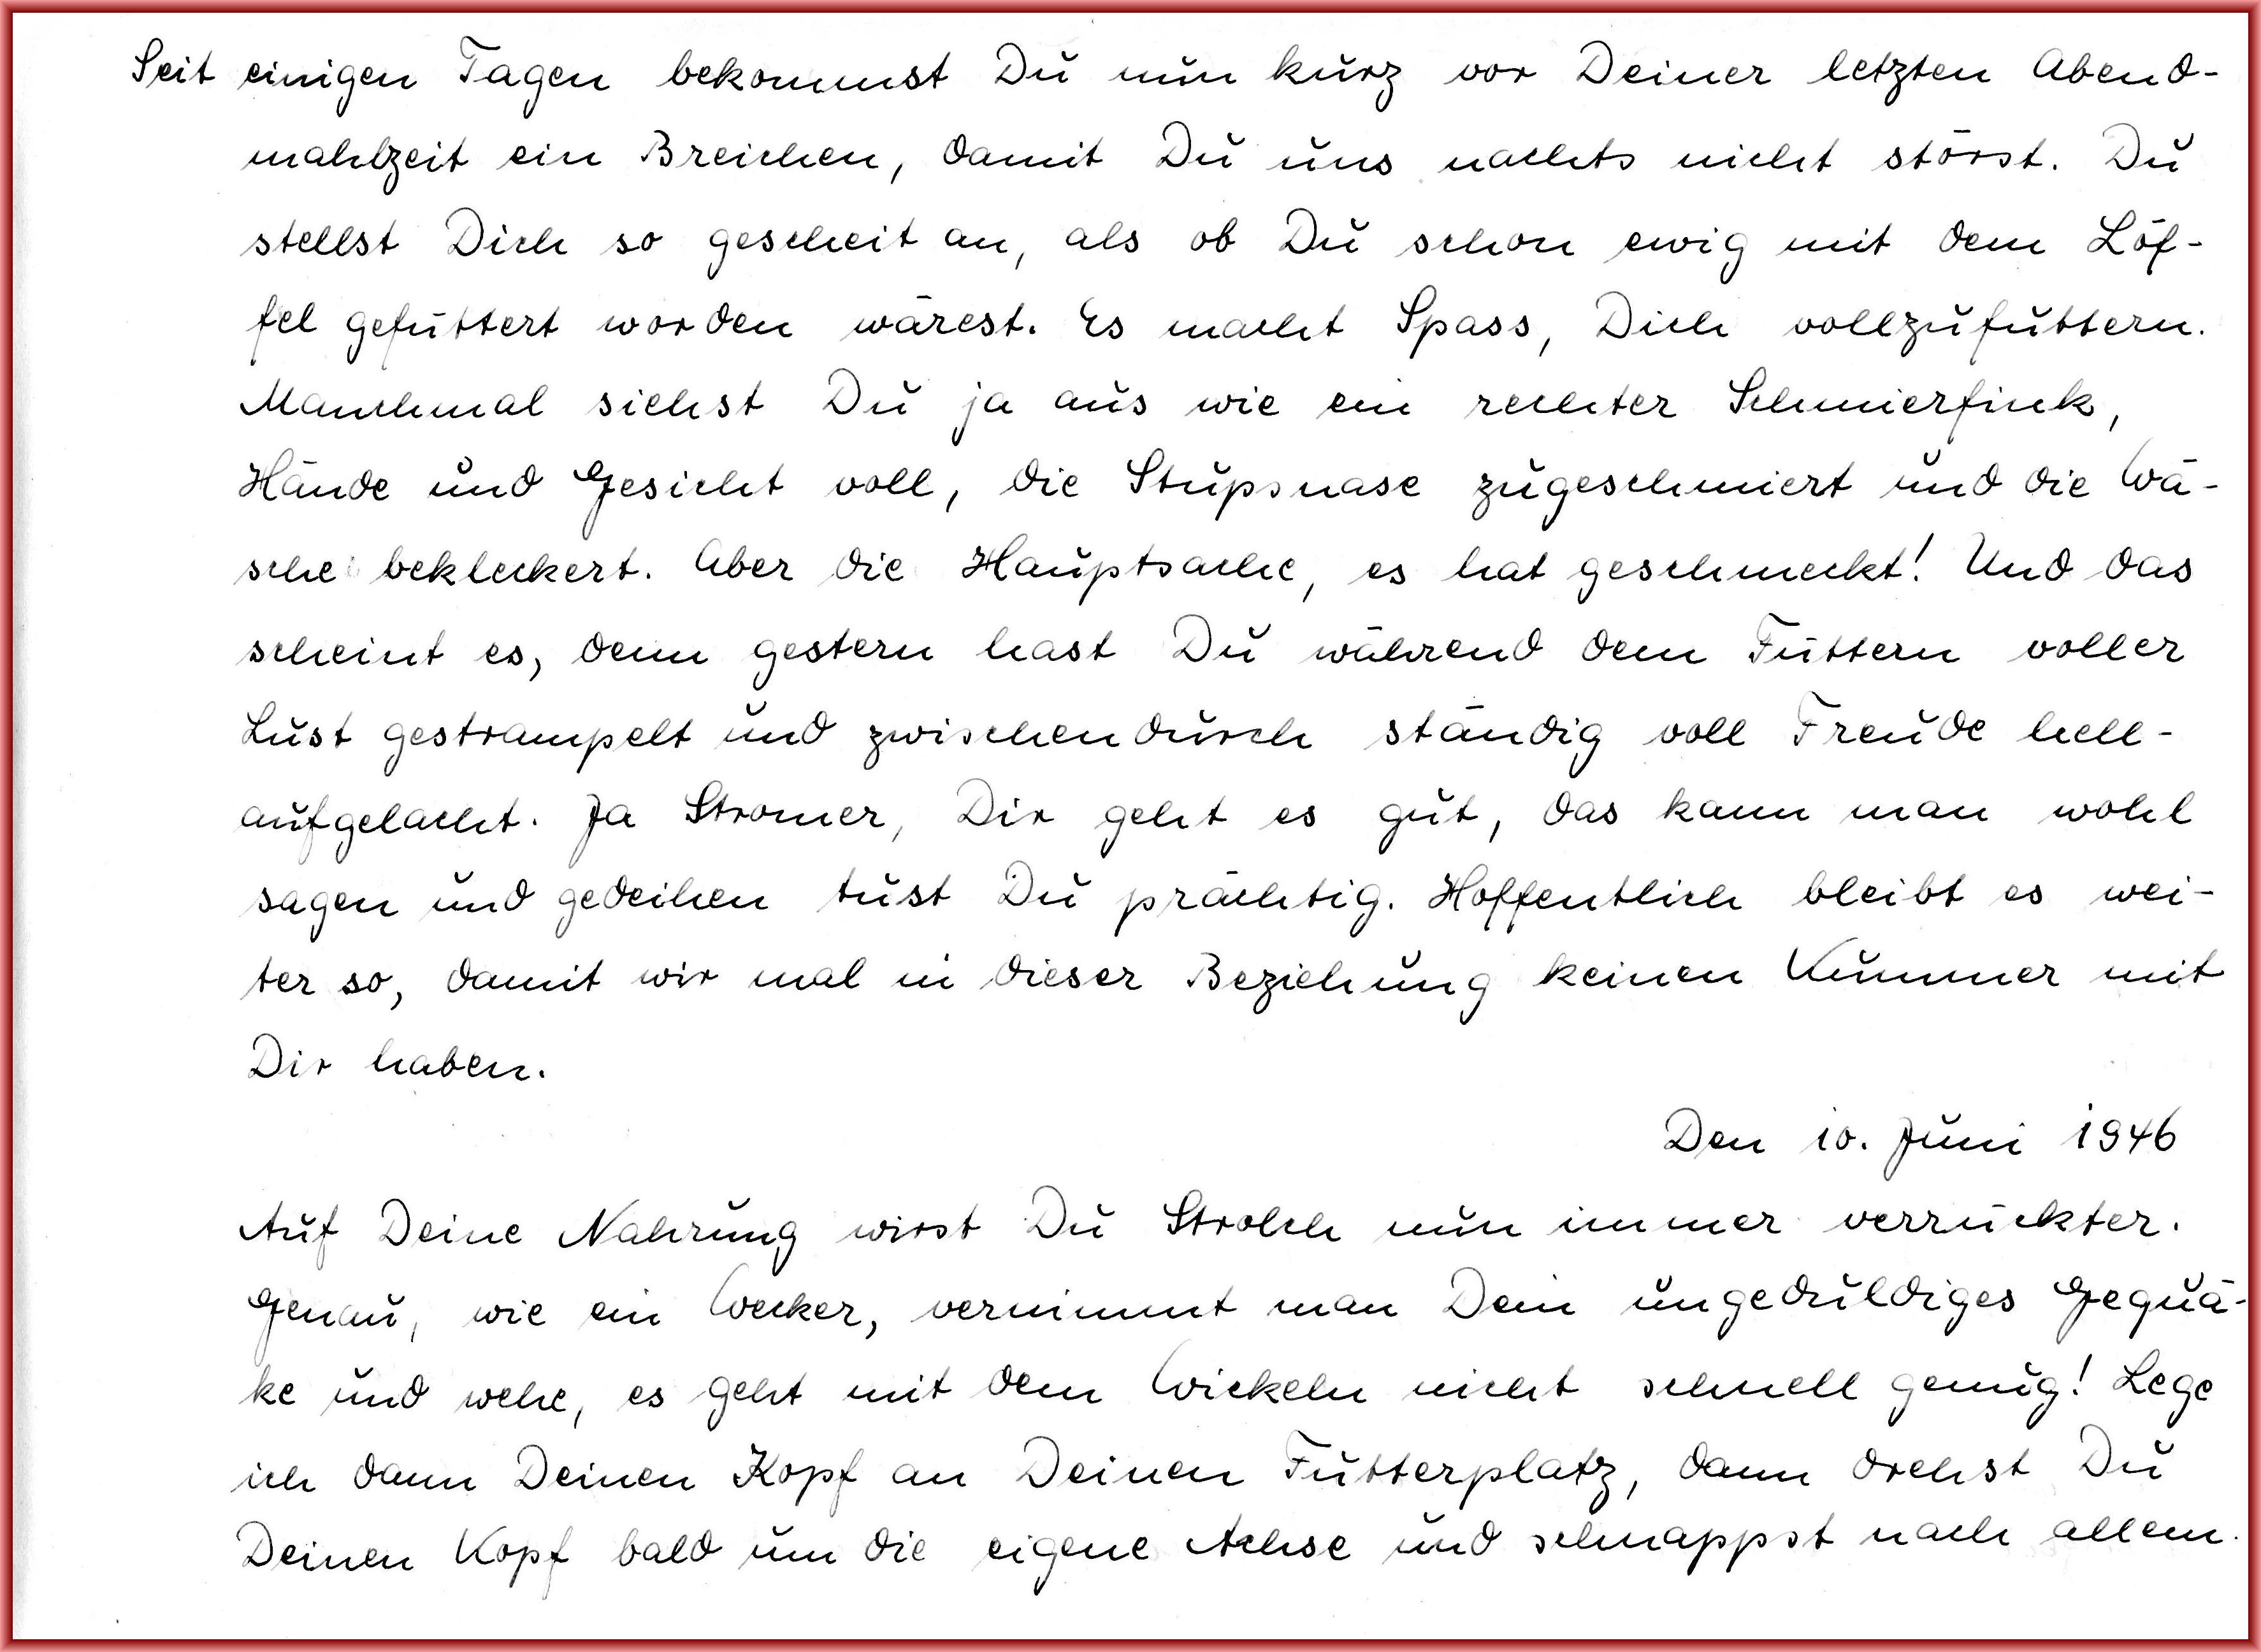 Seit einigen Tagen bekommst Du nun kurz vor Deiner letzten Abend-
mahlzeit ein Breichen, damit Du uns nachts nicht störst. Du
stellst Dich so gescheit an, als ob Du schon ewig mit dem Löf-
fel gefüttert worden wärest. Es macht Spass, Dich vollzufüttern.
Manchmal siehst Du ja aus wie ein rechter Schmierfink,
Hände und Gesicht voll, die Stupsnase zugeschmiert und die Wä-
sche bekleckert. Aber die Hauptsache, es hat geschmeckt! Und das
scheint es, denn gestern hast Du während dem Füttern voller
Lust gestrampelt und zwischendurch ständig voll Freude hell-
aufgelacht. Ja Stromer, Dir geht es gut, das kann man wohl
sagen und gedeihen tust Du prächtig. Hoffentlich bleibt es wei-
ter so, damit wir mal in dieser Beziehung keinen Kummer mit
Dir haben.
Den 10. Juni 1946
Auf Deine Nahrung wirst Du Strolch nun immer verrückter.
Genau, wie ein Wecker, vernimmt man Dein ungeduldiges Gequä-
ke und wehe, es geht mit dem Wickeln nicht schnell genug! Lege
ich dann Deinen Kopf an Deinen Futterplatz, dann drehst Du
Deinen Kopf bald um die eigene Achse und schnappst nach allem.